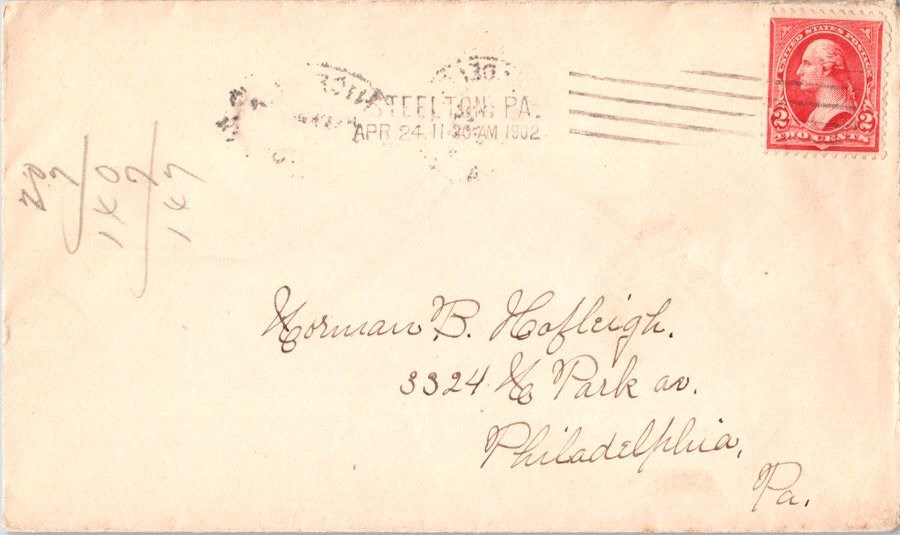 STEELTON, PA.
APR 24 11-30 AM 1902
UNITED STATES POSTAGE
2 2
TWO CENTS
20/140/147
Norman B. Hofleigh.
3324 N Park av.
Philadelphia,
Pa.